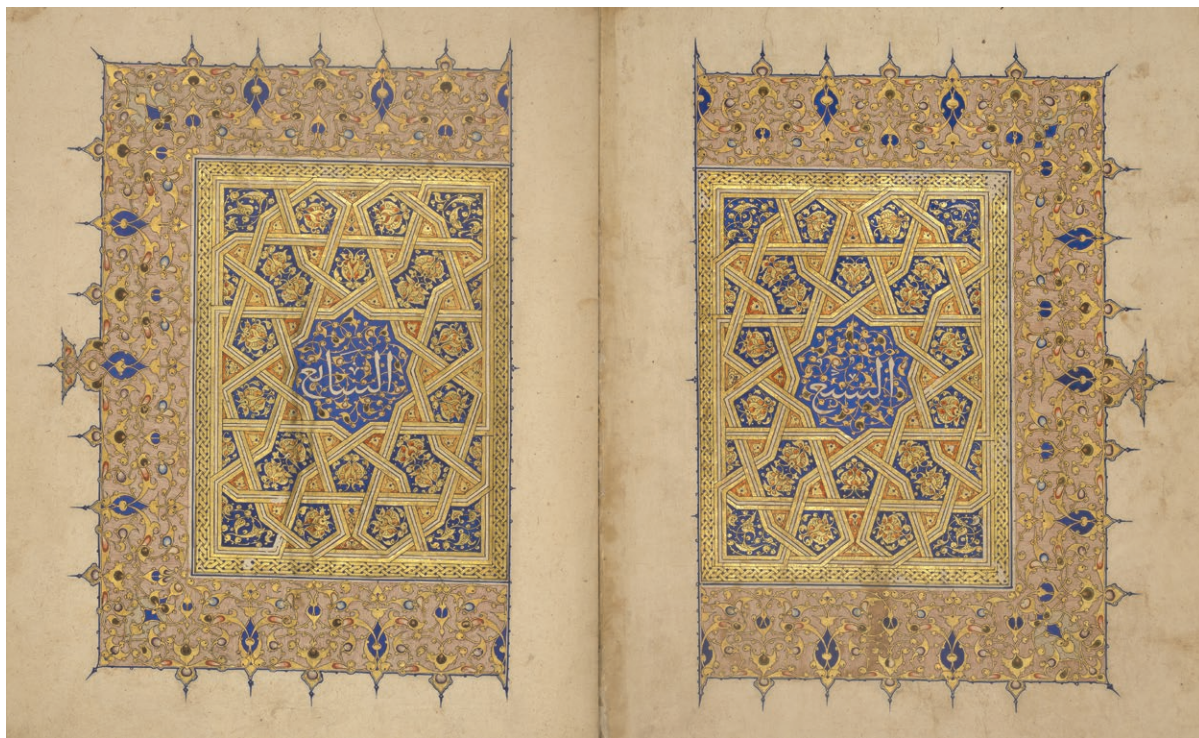 السبع
السابع